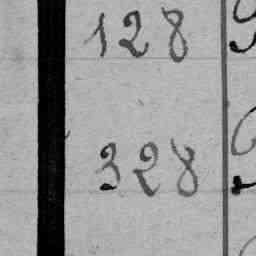 128
328